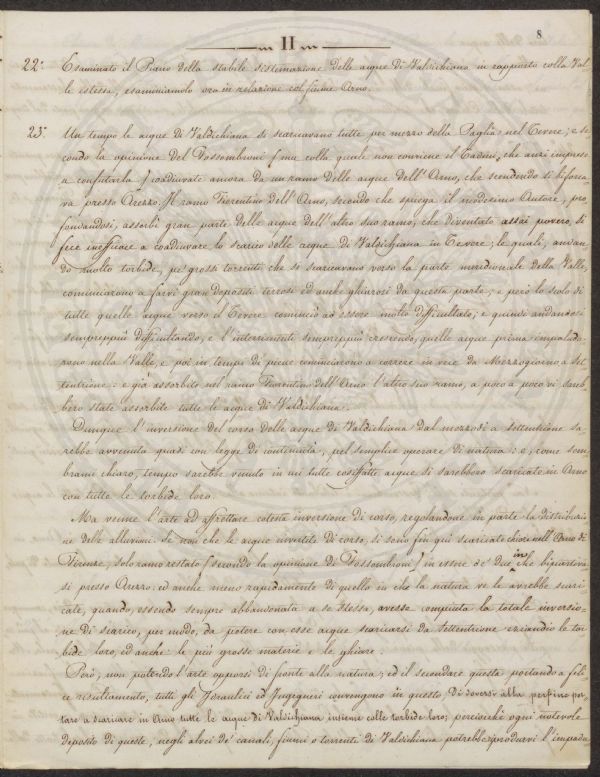 II
8
22°. Esaminato il Piano della stabile sistemazione delle acque di Valdichiana in rapporto colla Val-
le istessa, esaminiamolo ora in relazione col fiume Arno.
23°. Un tempo le acque di Valdichiana si scaricavano tutte per mezzo della Paglia nel Tevere; e se-
condo la opinione del Fossombroni (ma colla quale non conviene il Cadini, che anzi imprese
a confutarla) coadiuvate ancora da un ramo delle acque dell'Arno, che scendendo si biforca-
va presso Arezzo. Il ramo Fiorentino dell'Arno, secondo che spiega il medesimo Autore, pro-
fondandosi, assorbì gran parte delle acque dell'altro suo ramo, che diventato assai povero, si
fece inefficace a coadiuvare lo scarico delle acque di Valdichiana in Tevere; le quali, anian-
do molto torbide, pe' grossi torrenti che si scaricavano verso la parte meridionale della Valle,
cominciarono a farvi gran depositi terrosi ed anche ghiarosi da questa parte; e però lo scolo di
tutte quelle acque verso il Tevere cominciò ad essere molto difficultato; e quindi andandosi
sempreppiù difficultando, e l'interrimenti sempreppiù crescendo, quelle acque prima impaluda-
rono nella Valle, e poi in tempi di piene cominciarono a correre in vece da Mezzogiorno a Set-
tentrione: e già assorbito nel ramo Fiorentino dell'Arno l'altro suo ramo, a poco a poco vi sareb-
bero state assorbite tutte le acque di Valdichiana.
Dunque l'inversione del corso delle acque di Valdichiana dal mezzodì a settentrione sa-
rebbe avvenuta quasi con legge di continuità, pel semplice operare di natura: e, come sem-
brami chiaro, tempo sarebbe venuto in cui tutte cosiffatte acque si sarebbero scaricate in Arno
con tutte le torbide loro.
Ma venne l'arte ad affrettare cotesta inversione di corso, regolandone in parte la distribuzio-
ne delle alluvioni. Se non che le acque invertite di corso, si sono fin quì scaricate chiare nell'Arno di
Firenze, solo ramo restato (secondo la opinione di Fossombroni) in essere de' due in che bipartiva-
si presso Arezzo: ed anche meno rapidamente di quello in che la natura ve le avrebbe scari-
cate, quando, essendo sempre abbandonata a se stessa, avesse compiuta la totale inversio-
ne di scarico, per modo, da potere con esse acque scaricarsi da Settentrione eziandio le tor-
bide loro, ed anche le più grosse materie e le ghiare.
Però, non potendo l'arte opporsi di fronte alla natura; ed il secondare questa portando a feli-
ce risultamento, tutti gl'Idraulici ed Ingegneri convengono in questo, di doversi alla perfine por-
tare a scaricare in Arno tutte le acque di Valdichiana insieme colle torbide loro; perciocchè ogni notevole
deposito di queste, negli alvei de' canali, fiumi o torrenti di Valdichiana potrebbe riprodurvi l'impadu-